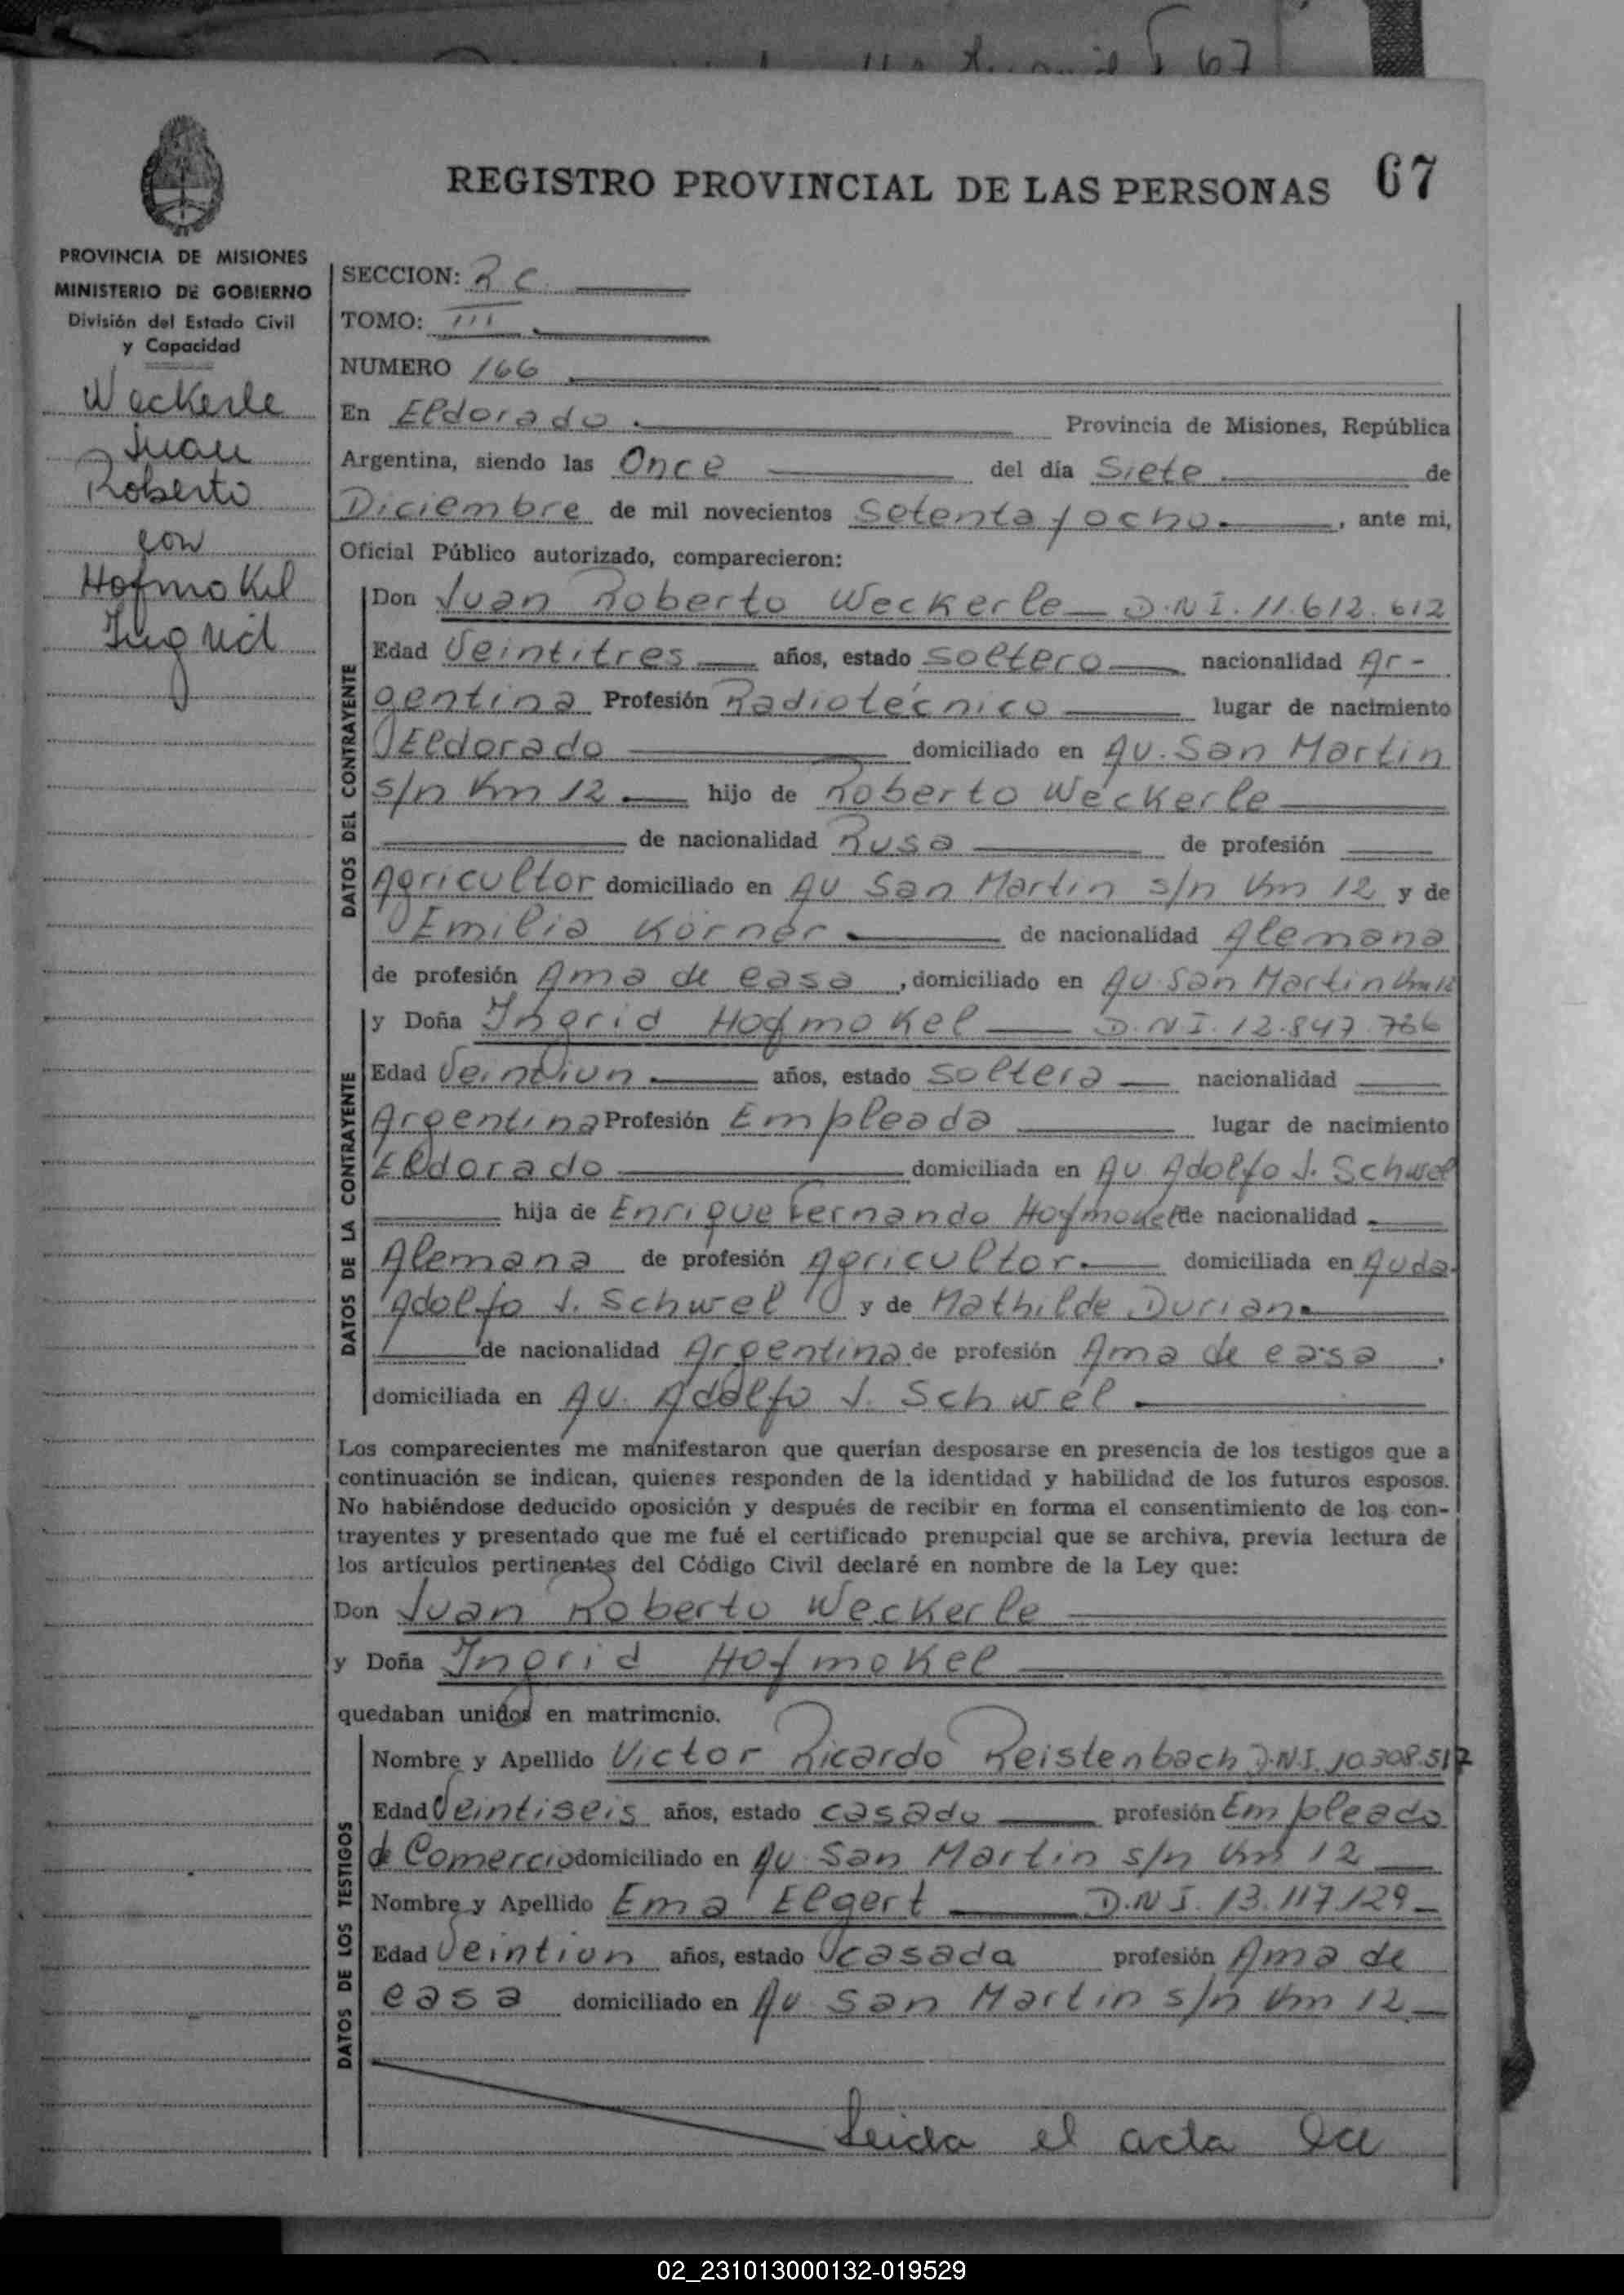 67
REGISTRO PROVINCIAL DE LAS PERSONAS 67
PROVINCIA DE MISIONES
MINISTERIO DE GOBIERNO
División del Estado Civil
y Capacidad
Weckerle
Juan
Roberto
con
Hofmokel
Ingrid
SECCION: R C
TOMO: III
NUMERO 166
En Eldorado. Provincia de Misiones, República
Argentina, siendo las Once del día Siete de
Diciembre de mil novecientos Setenta y ocho. , ante mi,
Oficial Público autorizado, comparecieron:
DATOS DEL CONTRAYENTE
Don Juan Roberto Weckerle D.N.I. 11.612.612
Edad Veintitres años, estado soltero nacionalidad Ar-
gentina Profesión Radiotécnico lugar de nacimiento
Eldorado domiciliado en Av. San Martin
s/n Km 12 hijo de Roberto Weckerle
de nacionalidad Rusa de profesión
Agricultor domiciliado en Av San Martin s/n Km 12 y de
Emilia Körner de nacionalidad Alemana
de profesión Ama de casa , domiciliado en Av. San Martin Km 12
DATOS DE LA CONTRAYENTE
y Doña Ingrid Hofmokel D.N.I. 12.847.786
Edad Veintiun años, estado soltera nacionalidad
Argentina Profesión Empleada lugar de nacimiento
Eldorado domiciliada en Av. Adolfo J. Schwel
hija de Enrique Fernando Hofmokel de nacionalidad
Alemana de profesión Agricultor. domiciliada en Avda.
Adolfo J. Schwel y de Mathilde Durian.
de nacionalidad Argentina de profesión Ama de casa .
domiciliada en Av. Adolfo J. Schwel.
Los comparecientes me manifestaron que querían desposarse en presencia de los testigos que a
continuación se indican, quienes responden de la identidad y habilidad de los futuros esposos.
No habiéndose deducido oposición y después de recibir en forma el consentimiento de los con-
trayentes y presentado que me fué el certificado prenupcial que se archiva, previa lectura de
los artículos pertinentes del Código Civil declaré en nombre de la Ley que:
Don Juan Roberto Weckerle
y Doña Ingrid Hofmokel
quedaban unidos en matrimonio.
DATOS DE LOS TESTIGOS
Nombre y Apellido Victor Ricardo Reistenbach D.N.I. 10.308.517
Edad Veintiseis años, estado casado profesión Empleado
de Comercio domiciliado en Av San Martin s/n Km 12
Nombre y Apellido Ema Elgert D.N.I. 13.117.129
Edad Veintiun años, estado casada profesión Ama de
casa domiciliado en Av San Martin s/n Km 12
Leida el acta la
02_231013000132-019529